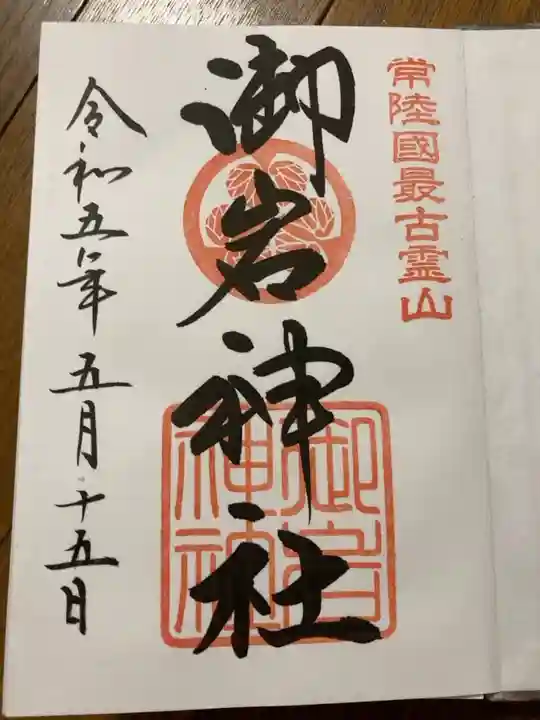 常陸國最古霊山
御岩神社
御岩神社
令和五年五月十五日